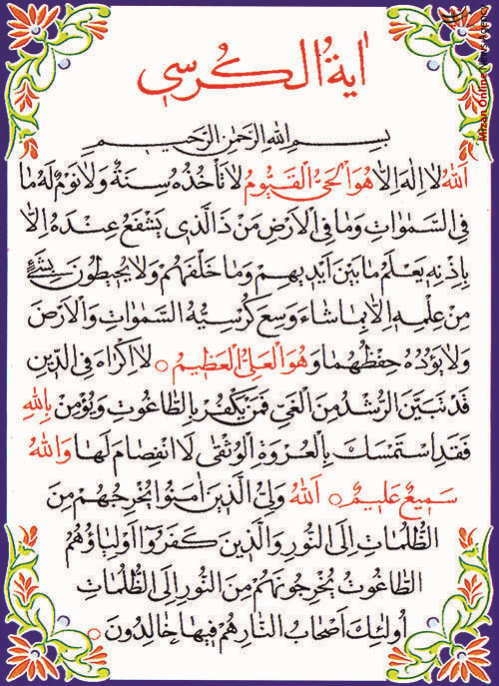 اٰيَةُ الْكُرسِى
بِسْمِ اللّٰهِ الرَّحْمٰنِ الرَّحيمِ
اَللّٰهُ لا اِلٰهَ اِلاّٰ هُوَ الْحَىُّ الْقَيُّومُ لا تَأْخُذُهُ سِنَةٌ وَلا نَوْمٌ لَهُ ما
فِى السَّمٰوٰاتِ وَما فِى الْاَرْضِ مَنْ ذَا الَّذى يَشْفَعُ عِنْدَهُ اِلاّٰ
بِاِذْنِهِ يَعْلَمُ ما بَيْنَ اَيْديهِمْ وَما خَلْفَهُمْ وَلا يُحيطُونَ بِشَىْءٍ
مِنْ عِلْمِهِ اِلاّٰ بِما شاءَ وَسِعَ كُرْسِيُّهُ السَّمٰوٰاتِ وَالْاَرْضَ
وَلا يَؤُدُهُ حِفْظُهُما وَهُوَ الْعَلِىُّ الْعَظيمُ ○ لا اِكْراهَ فِى الدّينِ
قَدْ تَبَيَّنَ الرُّشْدُ مِنَ الْغَىِّ فَمَنْ يَكْفُرْ بِالطّاغُوتِ وَيُؤْمِنْ بِاللّٰهِ
فَقَدِ اسْتَمْسَكَ بِالْعُرْوَةِ الْوُثْقىٰ لَا انْفِصامَ لَها وَاللّٰهُ
سَميعٌ عَليمٌ ○ اَللّٰهُ وَلِىُّ الَّذينَ اٰمَنُوا يُخْرِجُهُمْ مِنَ
الظُّلُماتِ اِلَى النُّورِ وَالَّذينَ كَفَرُوا اَوْلِياؤُهُمُ
الطّاغُوتُ يُخْرِجُونَهُمْ مِنَ النُّورِ اِلَى الظُّلُماتِ
اُولٰئِكَ اَصْحابُ النّارِ هُمْ فيها خالِدُونَ ○
Mizan Online